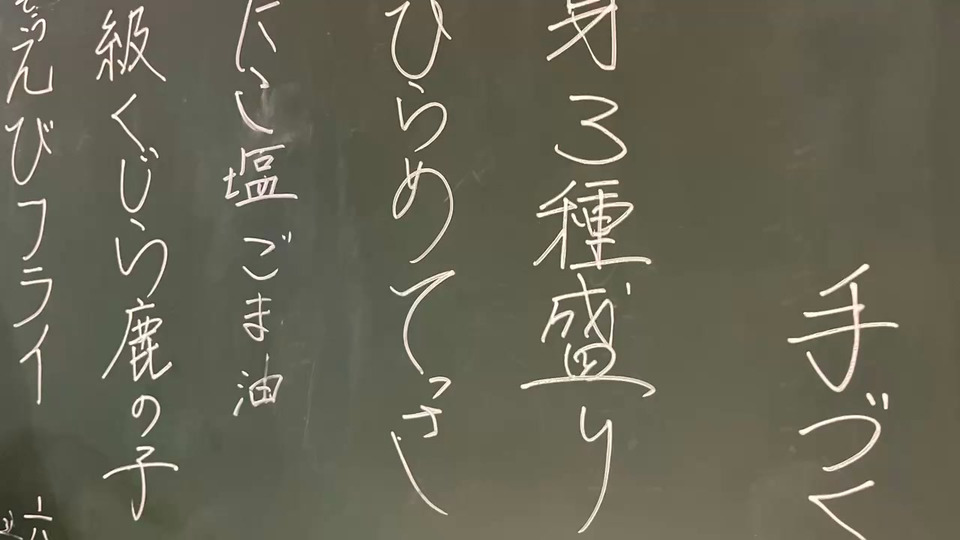 手づく
身3種盛り
ひらめてっさ
たこ塩ごま油
級くじら鹿の子
えびフライ
六